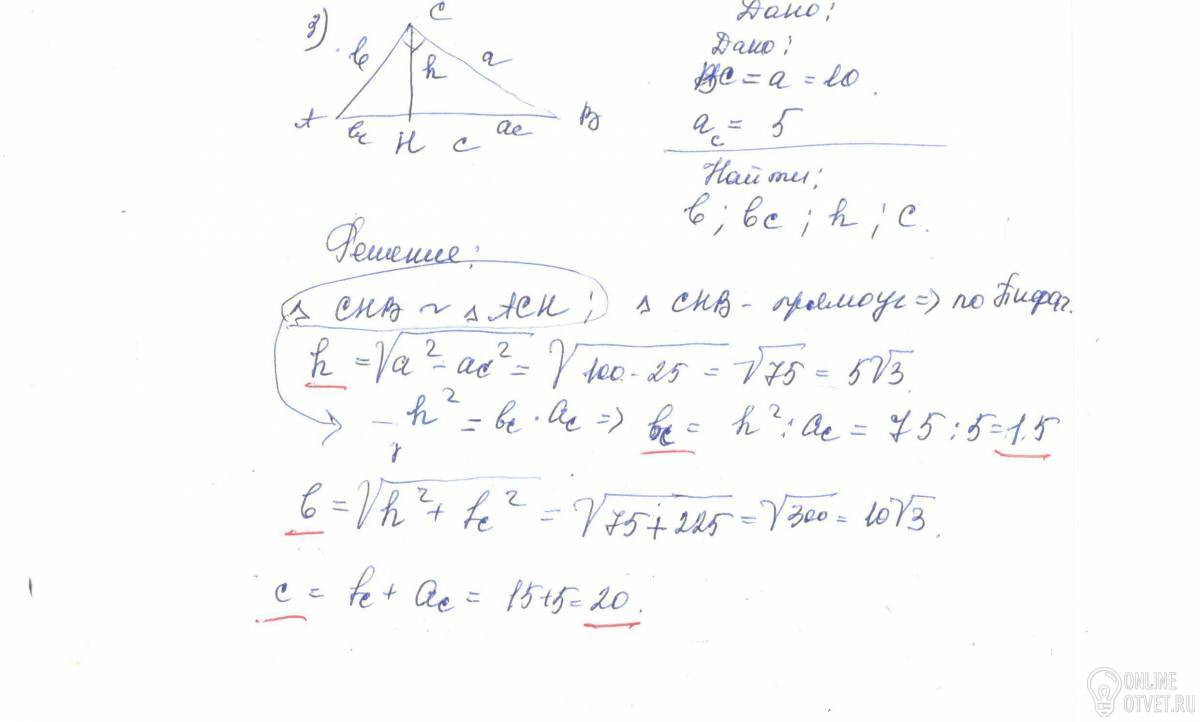 3)
C
в
a
h
A
B
вc
H
c
ac
Дано:
Дано:
BC = a = 10.
ac = 5
Найти:
в; вc; h; c.
Решение:
△ CHB ~ △ ACH; △ CHB - прямоуг => по Пифаг.
h = √a² - ac² = √100 - 25 = √75 = 5√3
h² = вc · ac => вc = h² : ac = 75 : 5 = 15
в = √h² + вc² = √75 + 225 = √300 = 10√3.
c = вc + ac = 15 + 5 = 20.
ONLINE
OTVET.RU